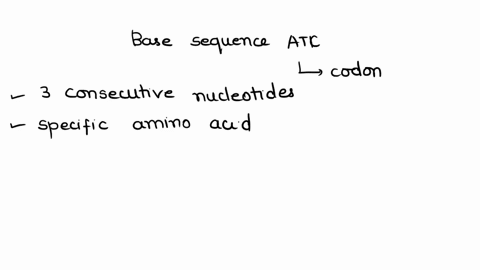 Base sequence ATC
↳ codon
- 3 consecutive nucleotides
- specific amino acid